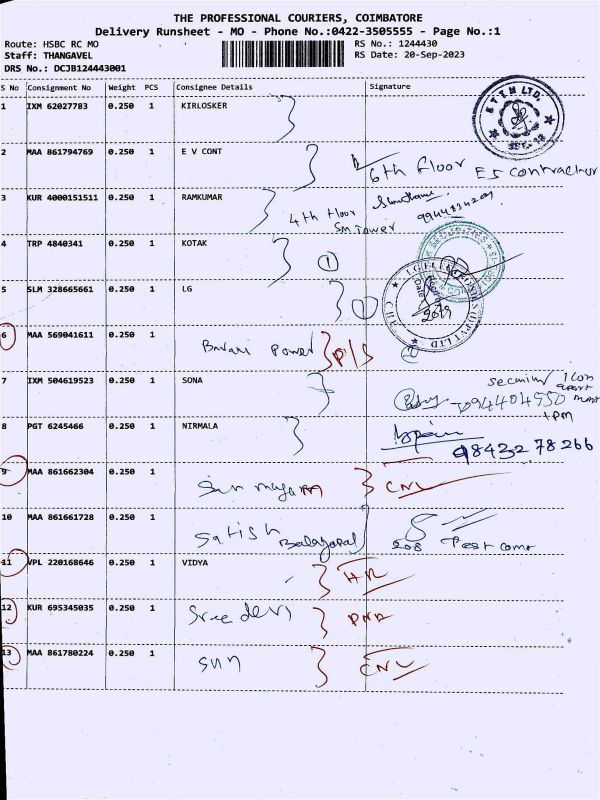 THE PROFESSIONAL COURIERS, COIMBATORE
Delivery Runsheet - MO - Phone No.:0422-3505555 - Page No.:1
Route: HSBC RC MO
RS No.: 1244430
Staff: THANGAVEL
RS Date: 20-Sep-2023
DRS No.: DCJB124443001
S No Consignment No Weight PCS Consignee Details Signature
1 IXM 62027783 0.250 1 KIRLOSKER
LTD.
2 MAA 861794769 0.250 1 E V CONT
6th floor
3 KUR 4000151511 0.250 1 RAMKUMAR
4th floor
SM Tower
4 TRP 4840341 0.250 1 KOTAK 1
5 SLM 328665661 0.250 1 LG 1
6 MAA 569041611 0.250 1 Power P/S
7 IXM 504619523 0.250 1 SONA
8 PGT 6245466 0.250 1 NIRMALA
98432 78266
9 MAA 861662304 0.250 1 CNL
10 MAA 861661728 0.250 1 Satish 208
11 VPL 220168646 0.250 1 VIDYA
12 KUR 695345035 0.250 1 Sree devi
13 MAA 861780224 0.250 1 Sun CNL